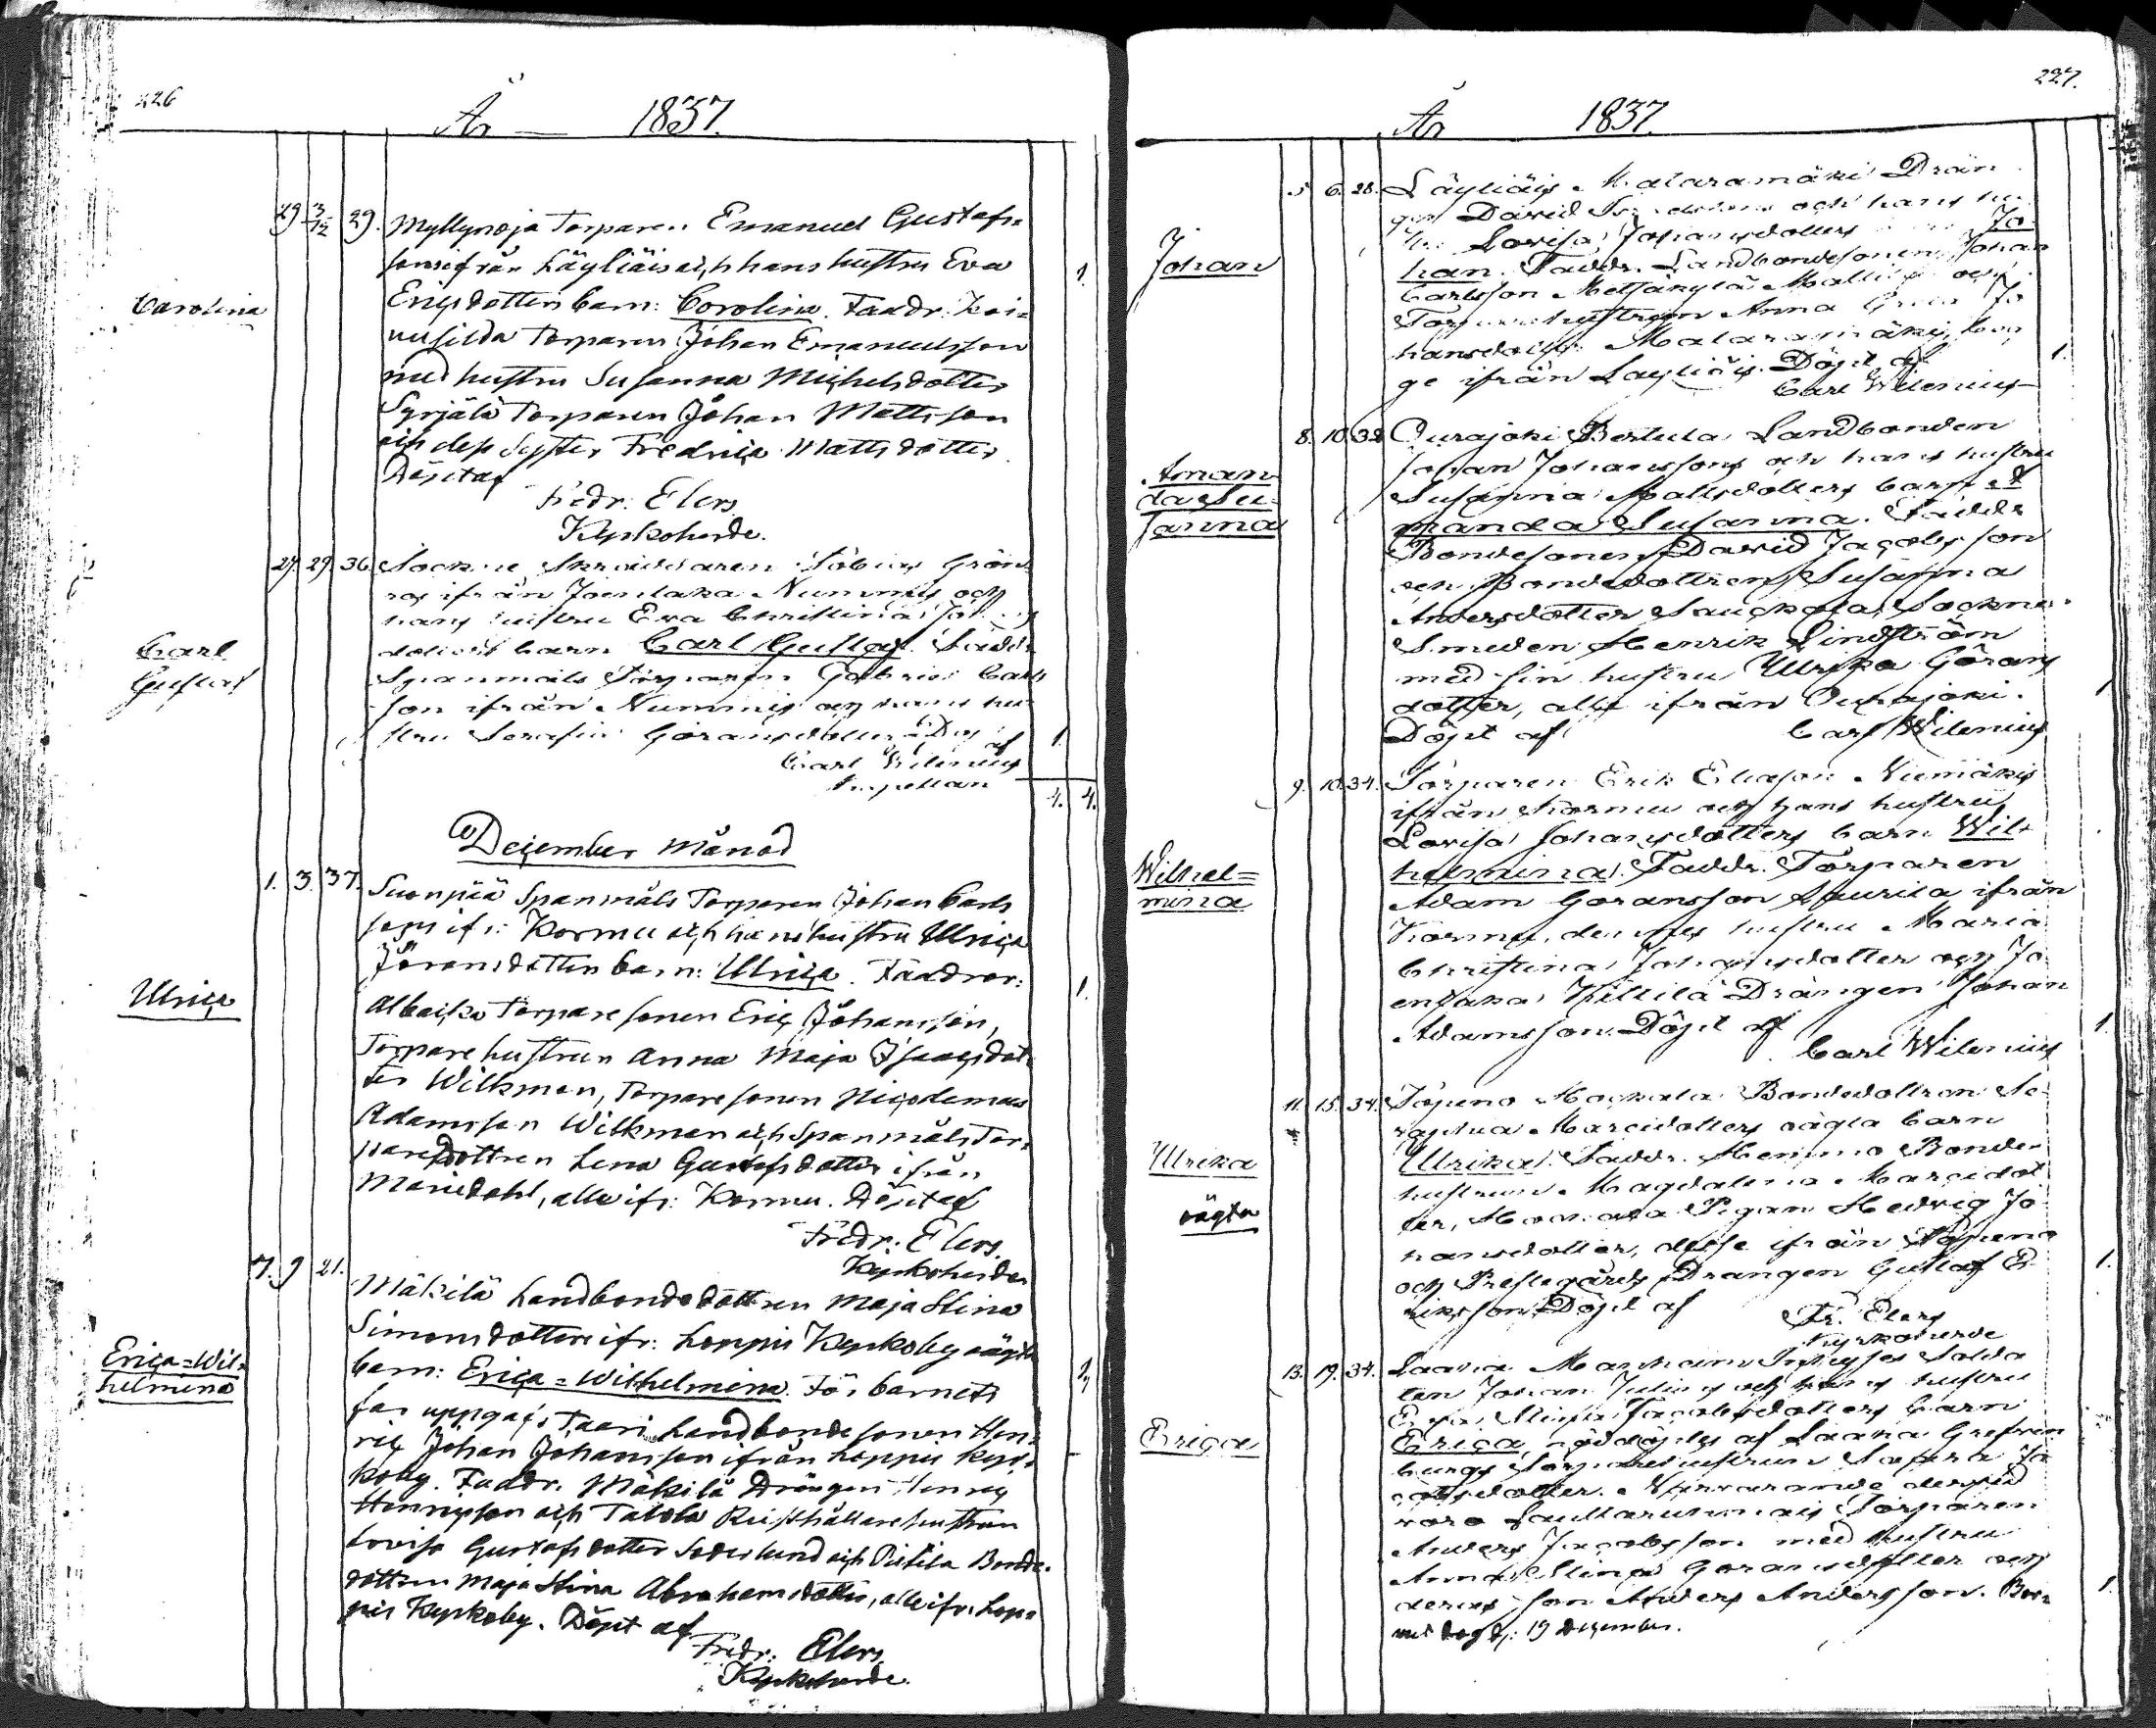 226
År 1837.
Carolina
29 3/12 29. Myllynoja Torparen Emanuel Gustafs=
sons ifrån Läyliäis och hans hustru Eva
Ericsdotters barn: Carolina. Faddr: Kai=
Torparen Johan Emanuelsson
med hustru Susanna Michelsdotter
Syrjälä Torparen Johan Mattsson
och dess Syster Fredrica Mattsdotter.
Döptaf
Fredr: Elers
Kyrkoherde.
1.
Carl
Gustaf
27. 29. 36. Sockne Skräddaren Tobias Grön
ifrån Joentaka Nummis och
hans hustru Eva Christina
dotters barn Carl Gustaf. Faddr
Spanmåls Torparen Gabriel Carls
son ifrån Nummis och hans hu
stru Serafia Göransdotter
af
Carl Wilenius
Kapellan
1.
4. 4.
December Månad
Ulrica
1. 3. 37. Suonpää Spanmåls Torparen Johan Carls
sons ifr: Kormu och hans hustru Ulrica
Jöransdotters barn: Ulrica. Faddrar:
Albaicka Torpare sonen Eric Johansson,
Torpare hustrun Anna Maja Isaacsdot=
ter Wilkman, Torpare sonen Nicodemus
Adamsson Wilkman och Spanmåls Tor=
paredottren Lena Gustafsdotter ifrån
Mariedahl, alla ifr: Kormu. Döptaf
Fredr: Elers.
Kyrkoherde
1.
Erica=Wil=
helmina
7. 9 21.
Mäkilä Landbondedottren Maja Stina
Simonsdotters ifr: Loppis Kyrkoby oägta
barn: Erica=Wilhelmina. För barnets
far uppgafs Taari Landbondesonen Hen=
ric Johan Johansson ifrån Loppis Kyr=
koby. Faddr. Mäkilä Drängen Henric
Henricsson och Talola Rusthållarehustrun
Lovisa Gustafsdotter Söderlund och Pietila Bonde=
dottren Maja Stina Abrahamsdotter, alla ifr: Lop=
pis Kyrkoby. Döpt af
Fredr: Elers.
Kyrkoherde.
227.
År 1837.
Johan
5 6. 28. Läyliäis Mataramäki Drän
gen David och hans hu
Lovisa Johansdotters Jo=
han. Faddr. Landbondesonen Johan
Carlsson Metsänkylä Mattila och
Torparehustrun Anna Greta Jo
hansdotter Mataramäki, bäg
ge ifrån Läyliäis. Döpt af
Carl Wilenius
1.
Aman
da Su=
sanna
8. 10. 32 Ourajoki Bertula Landbonden
Johan Johanssons och hans hustru
Susanna Mattsdotters barn A
manda Susanna. Faddr
Bondesonen David Jacobsson
och Bondedottren Susanna
Andersdotter Sauckola, Sockne=
Smeden Henrik Lindström
med sin hustru Ulrika Görans
dotter, alla ifrån Ourajoki.
Döpt af Carl Wilenius
1
Wilhel=
mina
9. 10. 34. Torparen Erik Ericsson Niemäkis
ifrån Kormu och hans hustru
Lovisa Johansdotters barn Wil=
helmina. Faddr. Torparen
Adam Göransson Laurila ifrån
Kormu, dennes hustru Maria
Christina Johansdotter och Jo
entaka Kittilä Drängen Johan
Adamsson. Döpt af
Carl Wilenius
1.
Ulrika
oägta
11. 15. 34. Topeno Mackala Bondedottren Se
raphia Marcidotters oägta barn
Ulrika. Faddr. Hemmo Bonde=
hustrun Magdalena Marcidot
ter, Mackala Pigan Hedvig Jo
hansdotter, desse ifrån Topeno
och Prestegårds Drängen Gustaf E
riksson. Döpt af
Fr. Elers
Kyrkoherde
1.
Erica
13. 19. 34. Laaka Manhem Inhyses Solda
ten Johan Julius och hans hustru
Eva Stina Jacobsdotters barn
Erica, nöddöptes af Laaka Grefven
bergs Torparehustrun Safira Ja
cobsdotter. Närvarande dervid
voro Torparen
Anders Jacobsson med hustru
Anna Stina Göransdotter och
deras son Anders Andersson. Bar=
net dog d: 19 December.
1.